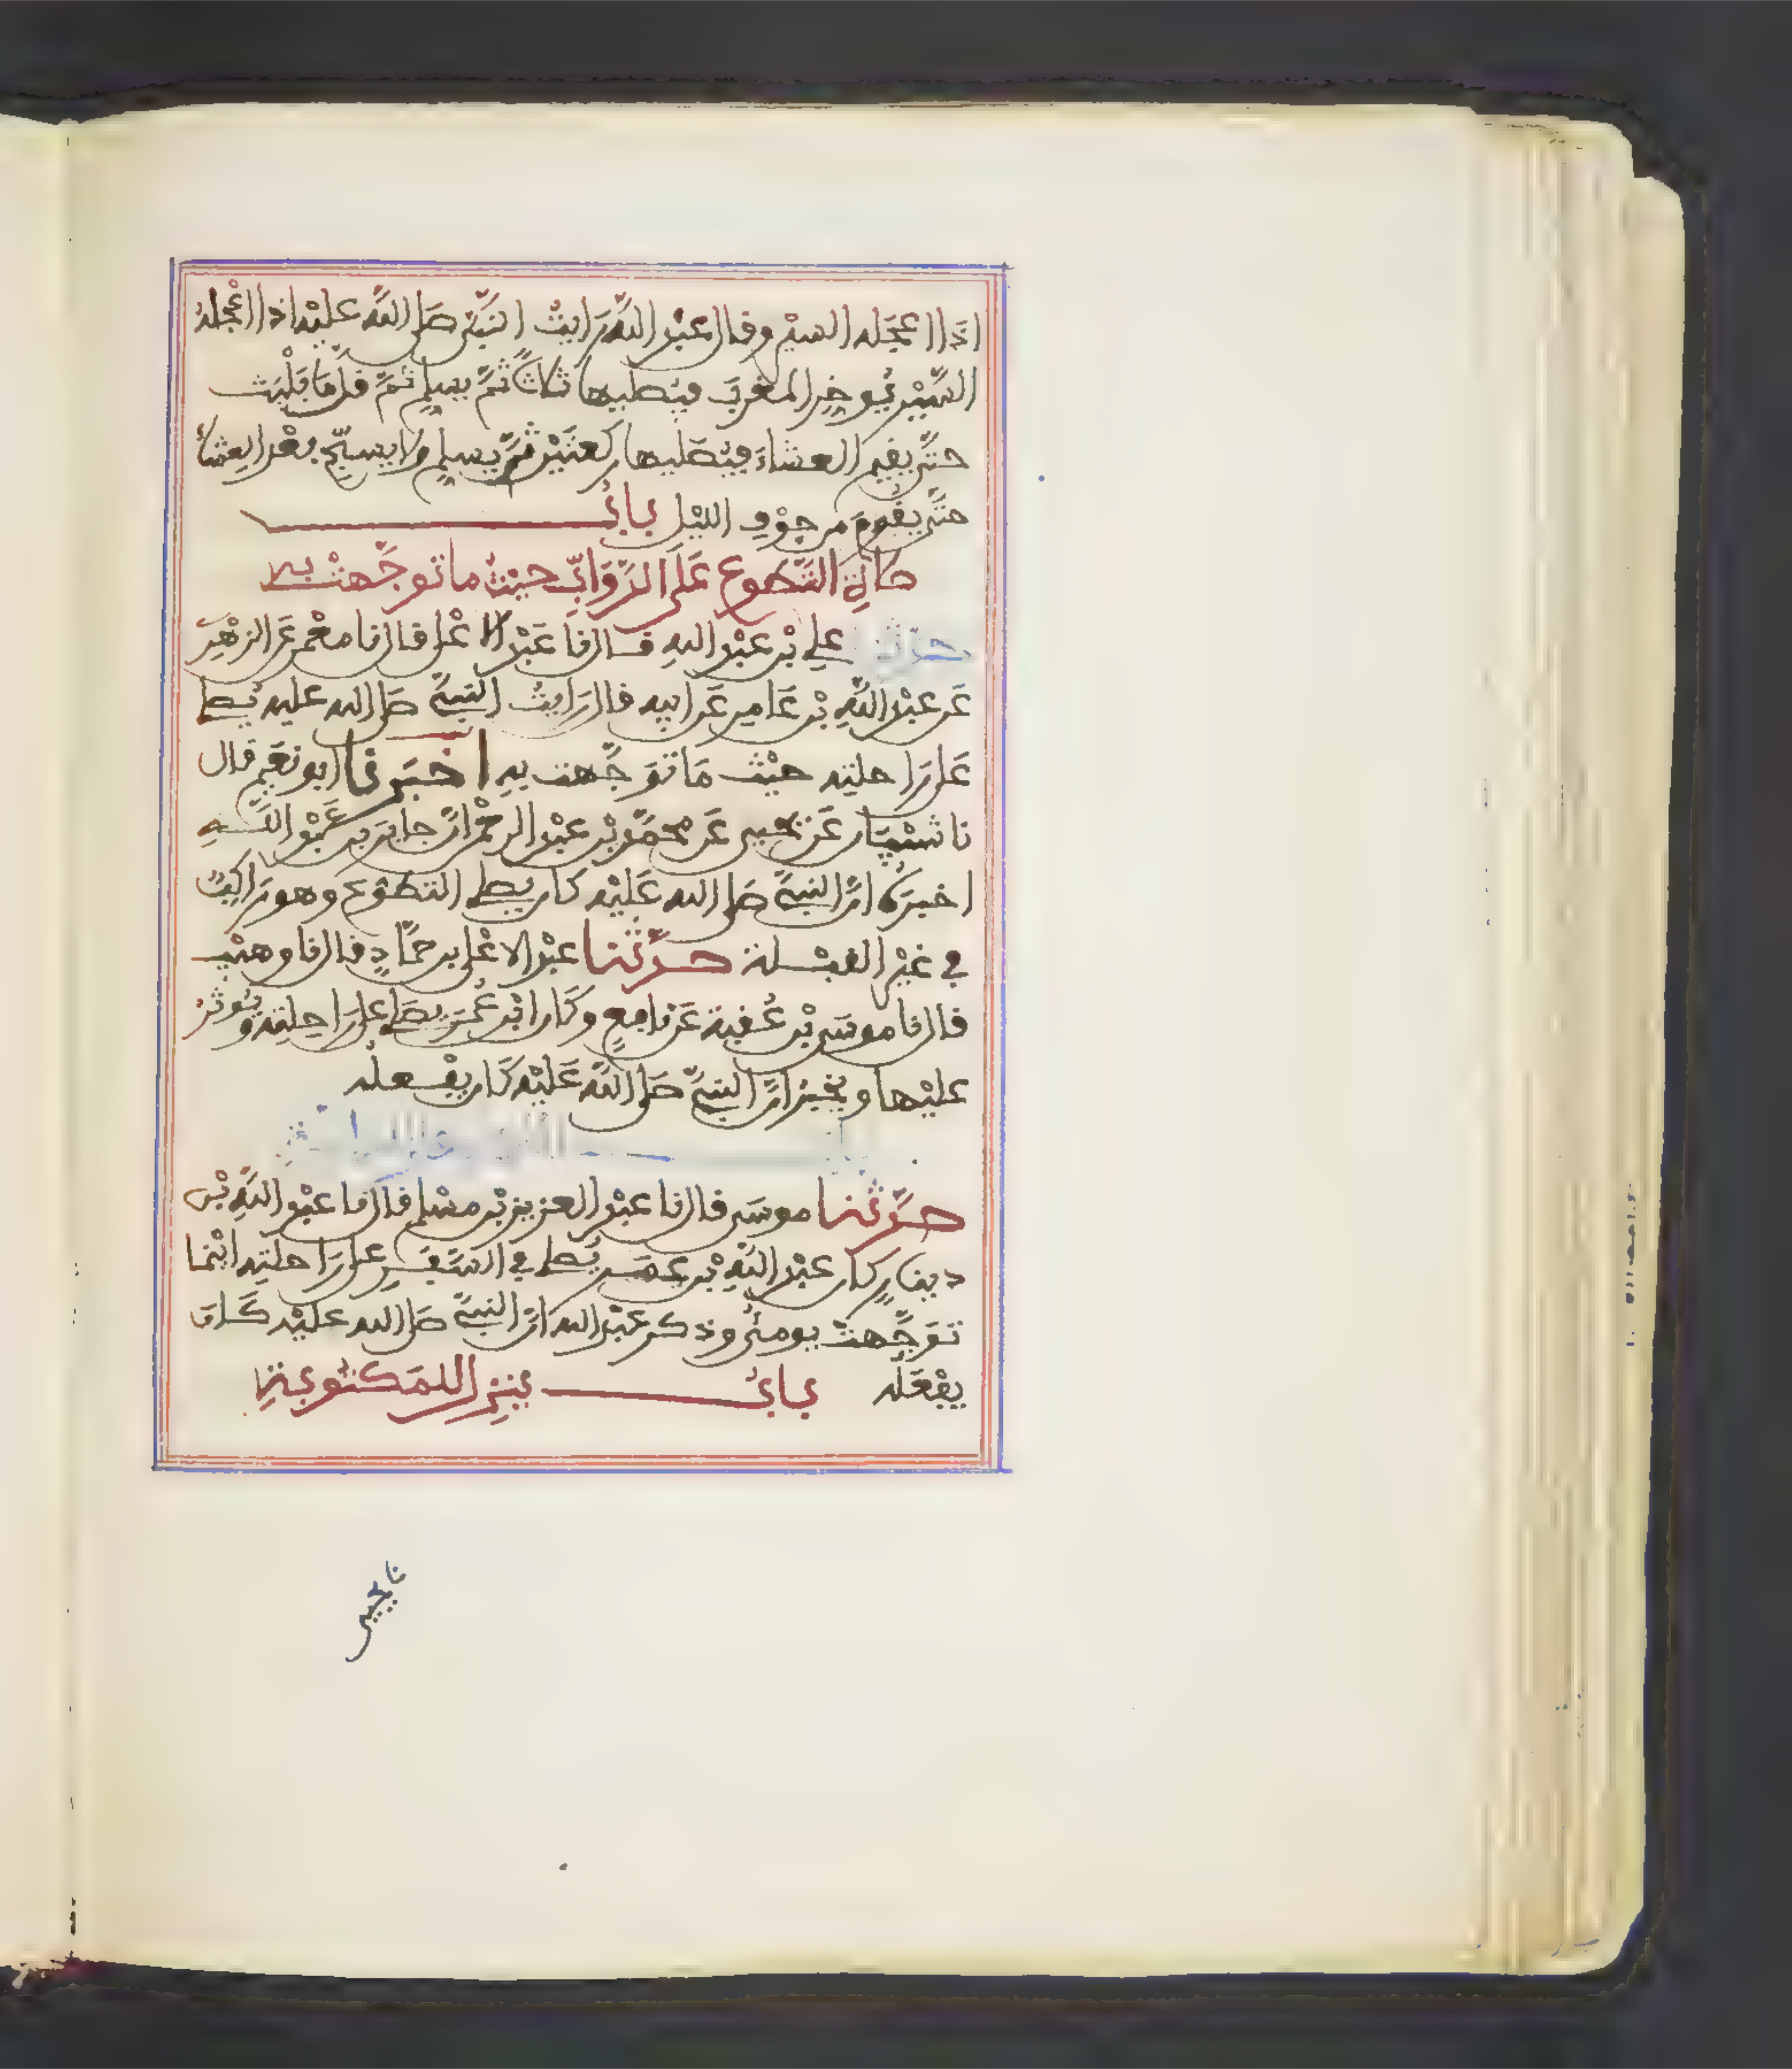 اذا اعجله السير وقال عبد الله رايت النبي صلى الله عليه اذا اعجله
السير يوخر المغرب فيصليها ثلاثا ثم يسلم ثم قل ما يلبث
حتى يقيم العشاء فيصليها ركعتين ثم يسلم ولا يسبح بعد العشاء
حتى يقوم من جوف الليل باب
صلاة التطوع على الدواب حيث ما توجهت به
حدثنا علي بن عبد الله قال نا عبد الاعلى قال نا معمر عن الزهري
عن عبد الله بن عامر عن ابيه قال رايت النبي صلى الله عليه يصلي
على راحلته حيث ما توجهت به اخبرنا ابو نعيم قال
نا شيبان عن يحيى عن محمد بن عبد الرحمن ان جابر بن عبد الله
اخبره ان النبي صلى الله عليه كان يصلي التطوع وهو راكب
في غير القبلة حدثنا عبد الاعلى بن حماد قال نا وهيب
قال نا موسى بن عقبة عن نافع وكان ابن عمر يصلي على راحلته ويوتر
عليها ويخبر ان النبي صلى الله عليه كان يفعله
حدثنا موسى قال نا عبد العزيز بن مسلم قال نا عبد الله بن
دينار كان عبد الله بن عمر يصلي في السفر على راحلته اينما
توجهت يومئ وذكر عبد الله ان النبي صلى الله عليه كان
يفعله باب ينزل للمكتوبة
نا يحيى